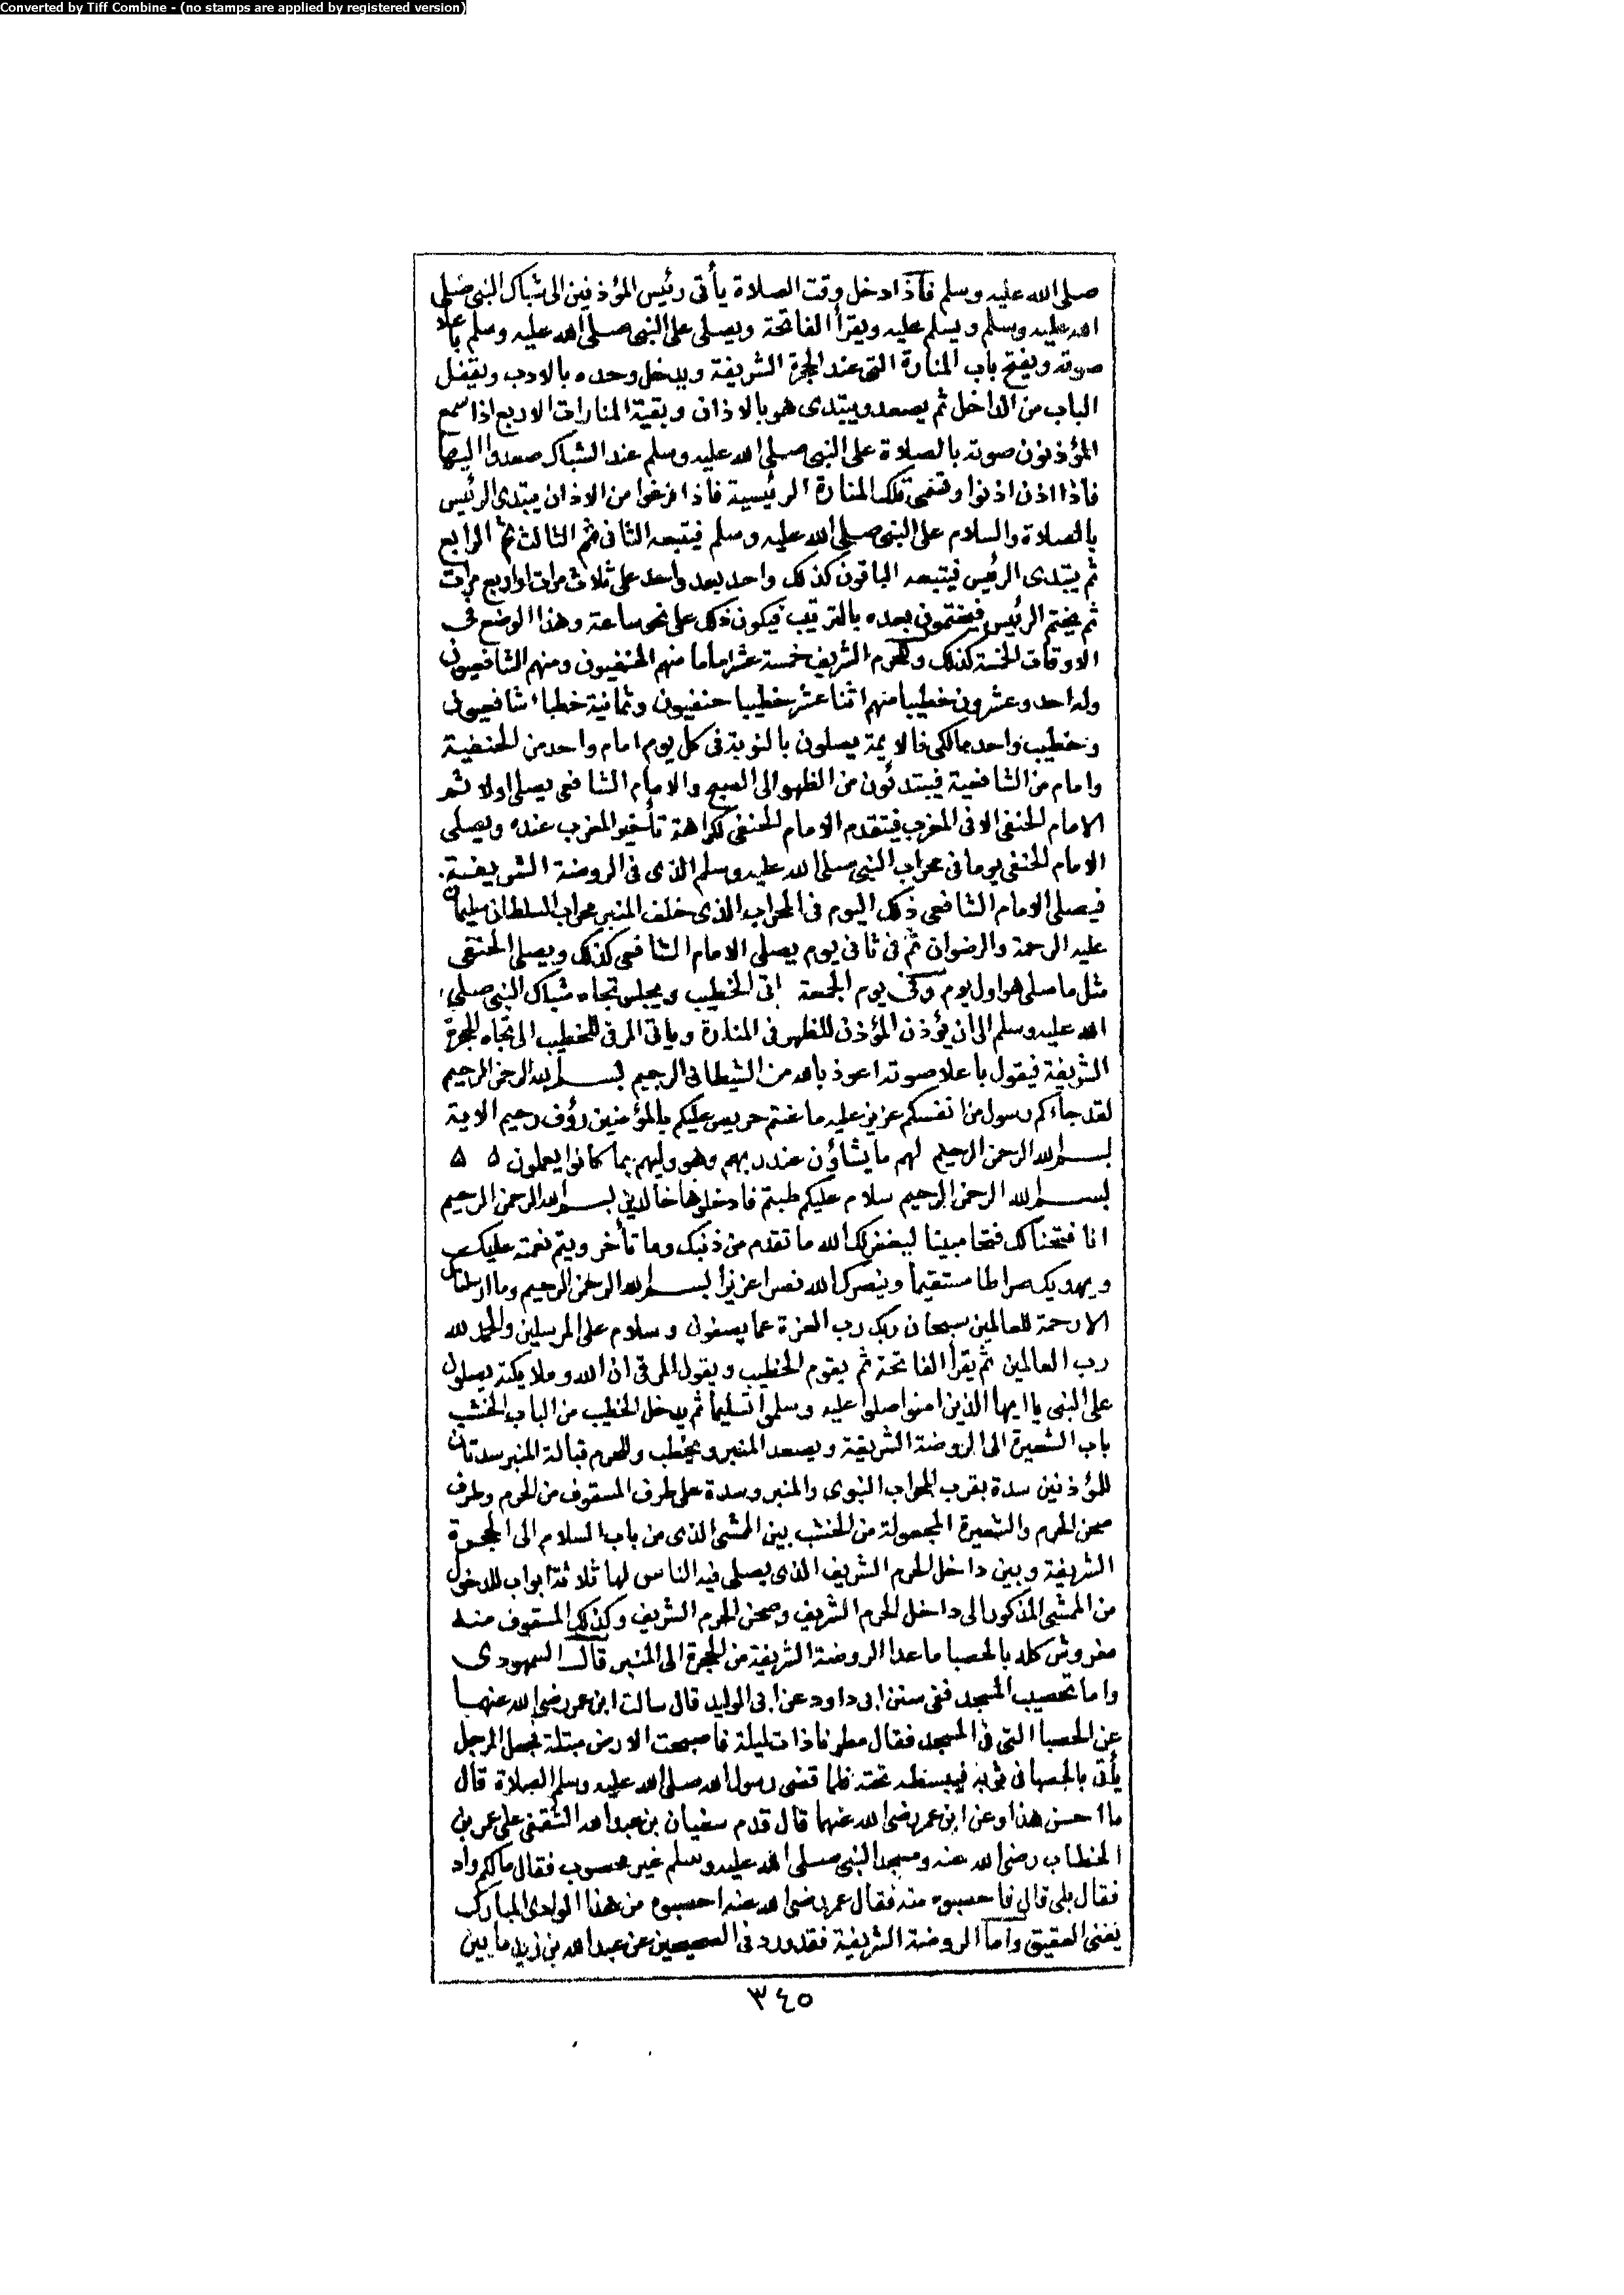 Converted by Tiff Combine - (no stamps are applied by registered version)
صلى الله عليه وسلم فاذا دخل وقت الصلاة يأتى رئيس المؤذنين الى شباك النبى صلى
الله عليه وسلم ويسلم عليه ويقرأ الفاتحة ويصلى على النبى صلى الله عليه وسلم باعلا
صوته ويفتح باب المنارة التى عند الحجرة الشريفة ويدخل وحده بالادب ويقفل
الباب من الداخل ثم يصعد ويبتدى هو بالاذان وبقية المنارات الاربع اذا سمع
المؤذنون صوته بالصلاة على النبى صلى الله عليه وسلم عند الشباك صعدوا اليها
فاذا اذن اذنوا وتسمى تلك المنارة الرئيسية فاذا فرغوا من الاذان يبتدى الرئيس
بالصلاة والسلام على النبى صلى الله عليه وسلم فيتبعه الثانى ثم الثالث ثم الرابع
ثم يبتدى الرئيس فيتبعه الباقون كذلك واحد بعد واحد على ثلاث مرات او اربع مرات
ثم يختم الرئيس فيختمون بعده بالترتيب فيكون ذلك على نحو ساعة وهذا الوضع فى
الاوقات الخمسة كذلك وللحرم الشريف خمسة عشر اماما منهم الحنفيون ومنهم الشافعيون
وله احد وعشرون خطيبا منهم اثنا عشر خطيبا حنفيون وثمانية خطباء شافعيون
وخطيب واحد مالكى فالايمة يصلون بالنوبة فى كل يوم امام واحد من الحنفية
وامام من الشافعية فيبتدئون من الظهر الى الصبح والامام الشافعى يصلى اولا ثم
الامام الحنفى الا فى المغرب فيتقدم الامام الحنفى لكراهة تأخير المغرب عنده ويصلى
الامام الحنفى يوما فى محراب النبى صلى الله عليه وسلم الذى فى الروضة الشريفة .
فيصلى الامام الشافعى ذلك اليوم فى المحراب الذى خلف المنبر محراب السلطان سليمان
عليه الرحمة والرضوان ثم فى ثانى يوم يصلى الامام الشافعى كذلك ويصلى الحنفى
مثل ما صلى هو اول يوم وفى يوم الجمعة اتى الخطيب ويجلس تجاه شباك النبى صلى
الله عليه وسلم الى ان يؤذن المؤذن للظهر فى المنارة وياتى المرقى للخطيب الى تجاه الحجرة
الشريفة فيقول باعلا صوته اعوذ بالله من الشيطان الرجيم بسم الله الرحمن الرحيم
لقد جاءكم رسول من انفسكم عزيز عليه ما عنتم حريص عليكم بالمؤمنين رؤف رحيم الاية
بسم الله الرحمن الرحيم لهم ما يشاؤن عند ربهم وهو وليهم بما كانوا يعملون ٥ ٥
بسم الله الرحمن الرحيم سلام عليكم طبتم فادخلوها خالدين بسم الله الرحمن الرحيم
انا فتحنا لك فتحا مبينا ليغفر لك الله ما تقدم من ذنبك وما تأخر ويتم نعمته عليك
ويهديك صراطا مستقيما وينصرك الله نصرا عزيزا بسم الله الرحمن الرحيم وما ارسلناك
الا رحمة للعالمين سبحان ربك رب العزة عما يصفون وسلام على المرسلين والحمد لله
رب العالمين ثم يقرأ الفاتحة ثم يقوم الخطيب ويقول المرقى ان الله وملايكته يصلون
على النبى ياايها الذين امنوا صلوا عليه وسلموا تسليما ثم يدخل الخطيب من الباب الخشب
باب الشعيرة الى الروضة الشريفة ويصعد المنبر ويخطب وللحرم قبالة المنبر سدتان
للمؤذنين سدة بقرب المحراب النبوى والمنبر وسدة على طرف المسقوف من الحرم وطرف
صحن الحرم والشعيرة المجعولة من الخشب بين الممشى الذى من باب السلام الى الحجرة
الشريفة وبين داخل الحرم الشريف الذى يصلى فيه الناس لها ثلاثة ابواب للدخول
من الممشى المذكور الى داخل الحرم الشريف وصحن الحرم الشريف وكذلك المسقوف منه
مفروش كله بالحصبا ما عدا الروضة الشريفة من الحجرة الى المنبر قال السمهودى
واما تحصيب المسجد ففى سنن ابى داود عن ابى الوليد قال سالت ابن عمر رضى الله عنهما
عن الحصبا التى فى المسجد فقال مطرنا ذات ليلة فاصبحت الارض مبتلة فجعل الرجل
يأتى بالحصبا فى ثوبه فيبسطه تحته فلما قضى رسول الله صلى الله عليه وسلم الصلاة قال
ما احسن هذا وعن ابن عمر رضى الله عنهما قال قدم سفيان بن عبد الله الثقفى على عمر بن
الخطاب رضى الله عنه ومسجد النبى صلى الله عليه وسلم غير محصوب فقال مالكم واد
فقال بلى قال فاحصبوه منه فقال عمر رضى الله عنه احصبوه من هذا الوادى المبارك
يعنى العقيق واما الروضة الشريفة فقد ورد فى الصحيحين عن عبد الله بن زيد ما بين
٣٤٥